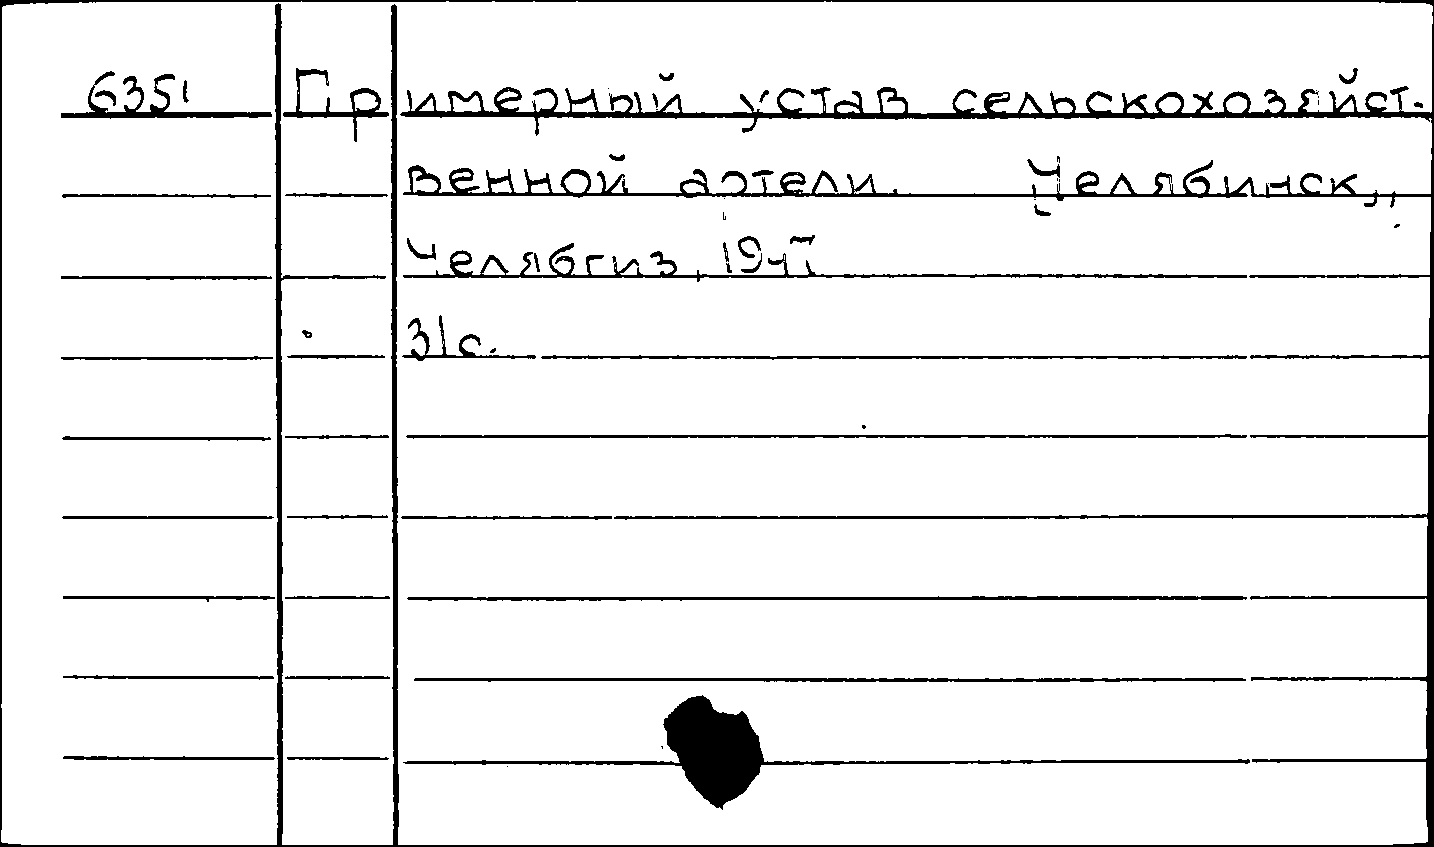 6351 Примерный устав сельскохозяйст-
венной артели. Челябинск,,
Челябгиз, 1947
31 с.